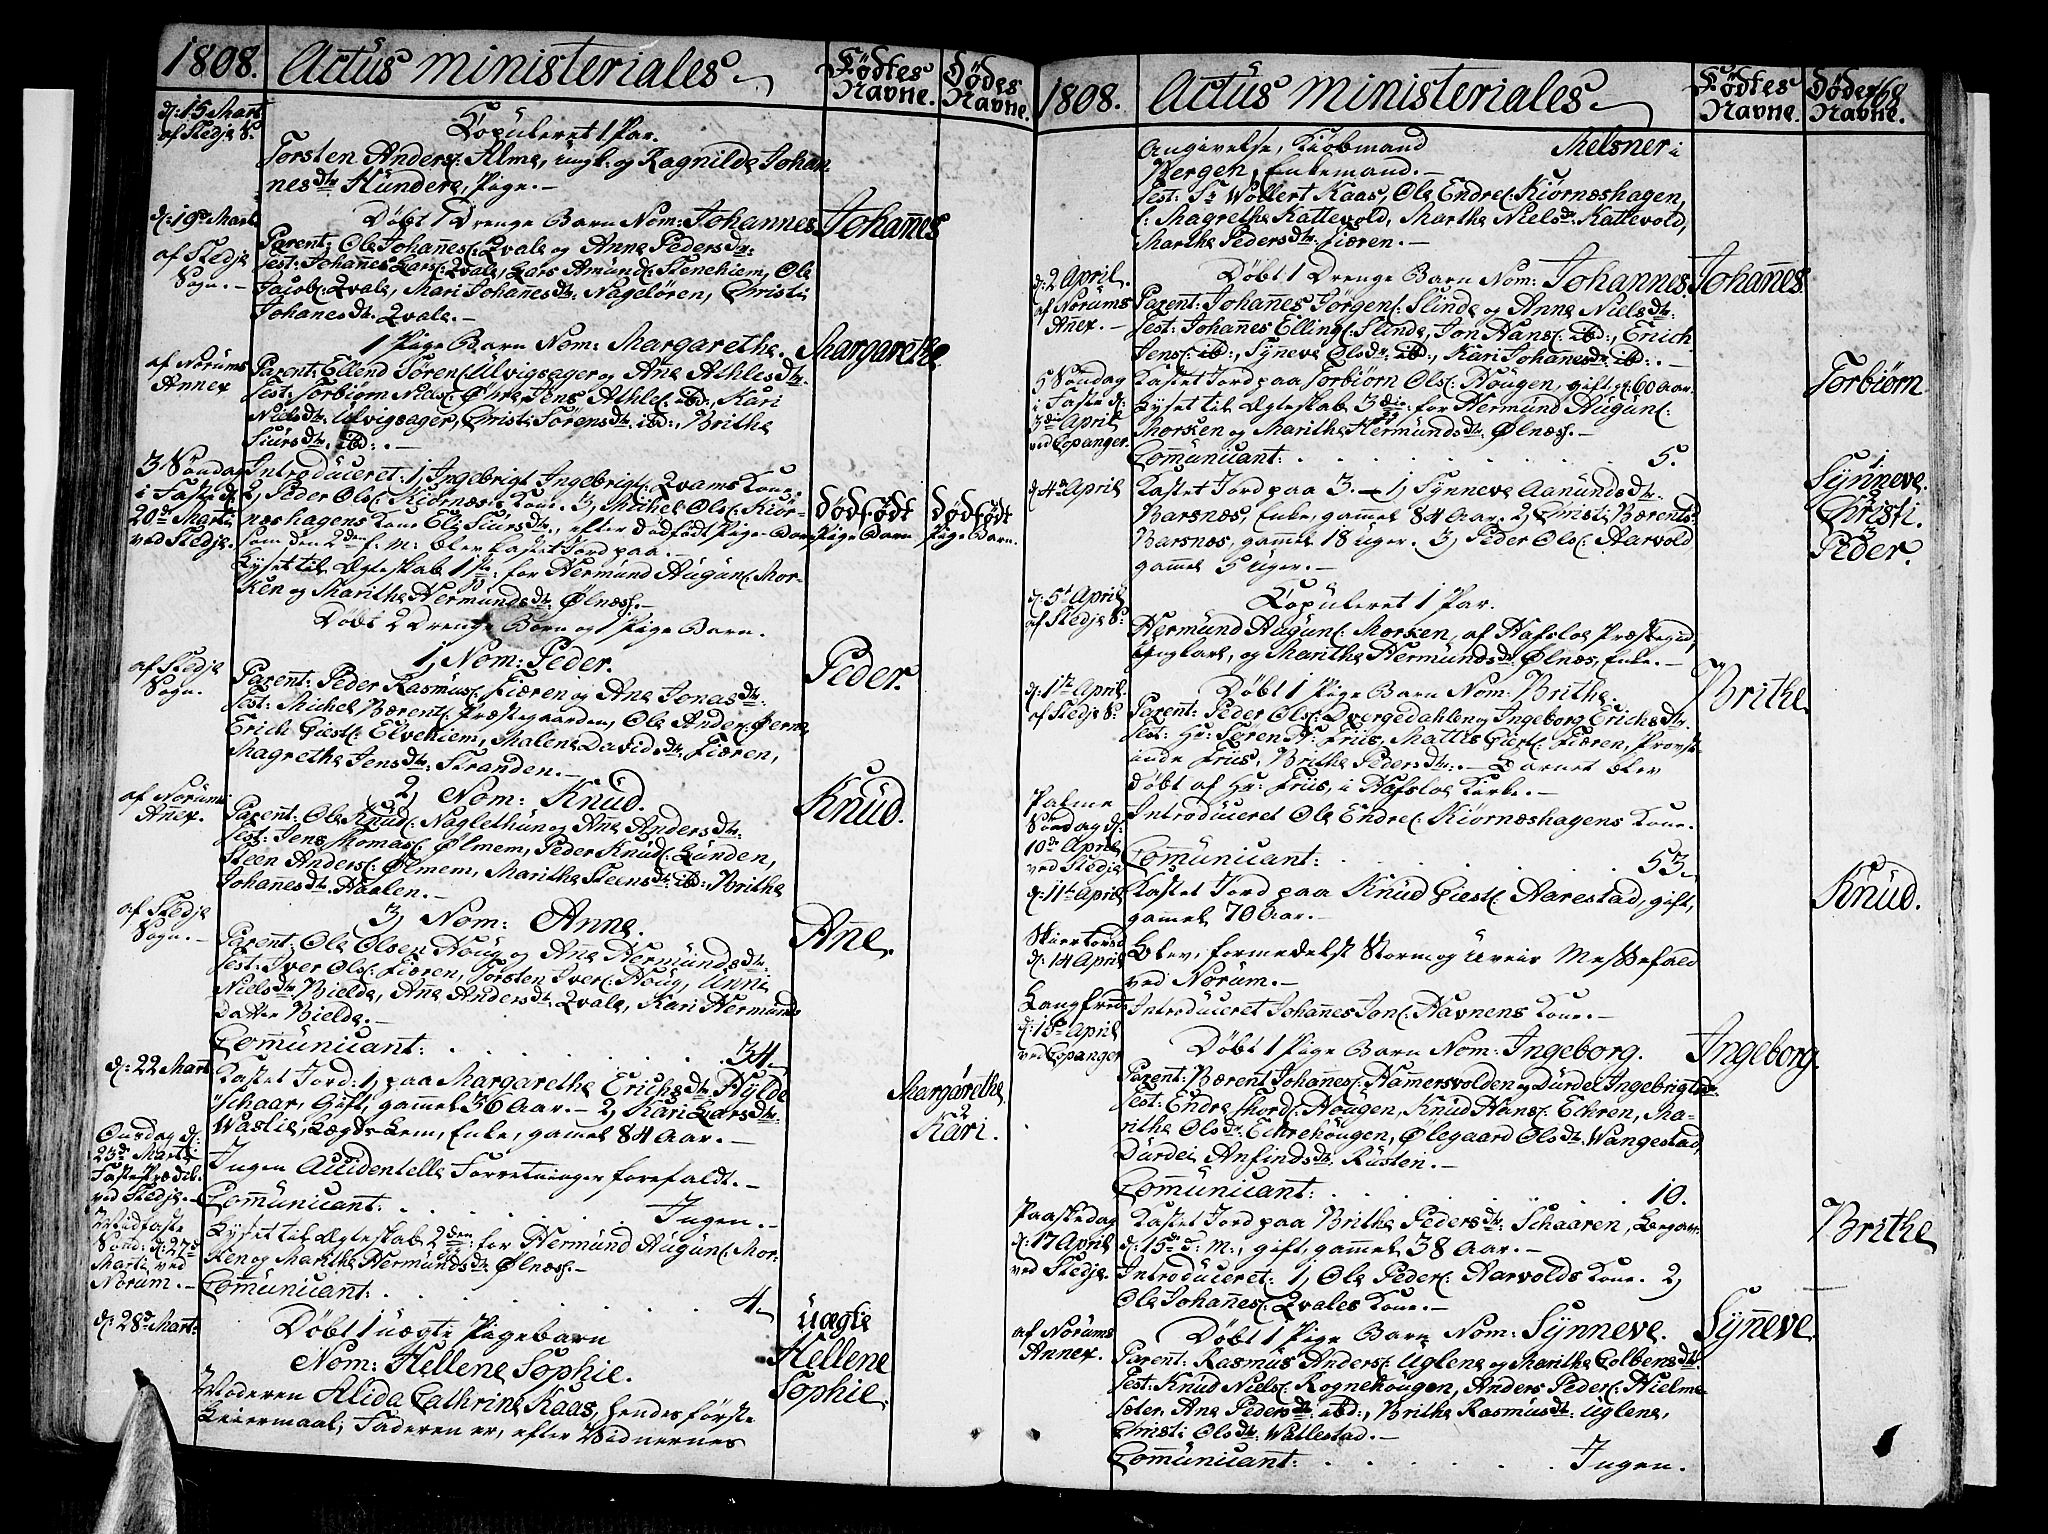 1808. Actus ministeriales. Fødtes Navne. Dødes Navne.
d: 15 Marti af Stedje S:
Copuleret 1 Par.
Torsten Anders: Alme, ungk: og Ragnilde Johan-
nesdtr Hundere, Pige.
d: 19de Marti af Stedje Sogn.
Døbt 1 Drenge Barn Nom: Johannes Johanes
Parent: Ole Johanes: Qvale og Anna Pedersdtr:
Test: Johanes Lars: Qvale, Lars Amund: Stenehiem, Ole
Jacob: Qvale, Mari Johanesdtr: Nageløren, Christi
Johanesdtr: Qvale.
af Norums Annex
1 Pige Barn Nom: Margarethe. Margarethe
Parent: Ellend Søren: Ulvigsager og Ane Athlesdtr:
Test: Torbiørn Niels: Øhre, Jens Athle: ibd:, Kari
Nielsdtr: Ulvigsager, Christi Sørensdtr: ibd:, Brithe
Siursdtr: ibd:.
3 Søndag i Faste d: 20de Marti ved Stedje.
Introduceret: 1, Ingebrigt Ingebrigt: Qvams Kone,
2, Peder Ols: Kiørnæs Kone. 3, Michel Ols: Kiør-
næshagens Kone Eli Siursdtr:, efter dødfødt Pige-Barn
som den 2den f: M: blev kastet Jord paa.
dødfødt Pige Barn dødfødt Pige Barn.
Lyset til Ægteskab 1ste: for Hermund Augun: Mor-
ken og Marithe Hermundsdtr: Ølnæs.
Døbt 2 Drenge Børn og 1 Pige Barn.
af Stedje Sogn.
1, Nom: Peder. Peder.
Parent: Peder Rasmus: Fiæren og Ane Jonasdtr:
Test: Michel Bærent: Præstegaarden, Ole Anders:
Erich Giest: Elvehiem, Malene Davidsdtr: Fiæren,
Magrethe Jensdtr: Stranden.
af Norums Anex.
2, Nom: Knud. Knud.
Parent: Ole Knud: Naglethun og Ane Andersdtr:
Test: Jens Thomas: Ølmem, Peder Knud: Lunden,
Steen Anders: Ølmem, Marithe Steensdtr: ibd:, Brithe
Johanesdtr: Haalen.
af Stedje Sogn.
3, Nom: Anne. Ane.
Parent: Ole Olsen Houg og Ane Hermundsdtr:
Test: Iver Ols: Fiæren, Torsten Iver: Houg, Unni
Nielsdtr: Bielde, Ane Andersdtr: Qvale, Kari Hermunds
datter Bielde.
Comunicant: . . . . . . 34.
d: 22 Marti
Kastet Jord: 1, paa Margarethe Erichsdtr: Hylde
schaar, Gift, gammel 36 Aar. 2, Kari Larsdtr:
Wastie, Lægds-Lem, Enke, gamel 84 Aar.
Margarethe 2 Kari.
Onsdag d: 23de Marti Faste Prædik: ved Stedje.
Ingen Accidentelle Forretninger forefaldt.
Comunicant: . . . . . . Ingen.
Midfaste Sønd: d: 27de Marti ved Norum.
Lyset til Ægteskab 2den: for Hermund Augun: Mor-
ken og Marithe Hermundsdtr: Ølnæs.
Comunicant: . . . . . . 4.
d: 28de Marti
Døbt 1 uægte Pigebarn
Nom: Hellene Sophie. uægte Hellene Sophie.
Moderen Alida Cathrine Kaas, hendes første
Leiermaal; Faderen er, efter Vidnernes
1808. Actus ministeriales. Fødtes Navne. Dødes Navne. 168
Angivelse, Kiøbmand Meisner i
Bergen, Enkemand.
Test: Sr Wollert Kaas, Ole Endre: Kiørnæshagen,
Magrethe Kattevold, Marthe Nielsdr: Kattevold,
Marthe Pedersdtr: Fiæren.
d: 2 April. af Norums Anex.
Døbt 1 Drenge Barn Nom: Johannes. Johanes
Parent: Johanes Jørgen: Slinde og Anne Nielsdtr:
Test: Johanes Elling: Slinde, Jon Hans: ibd:, Erich
Jens: ibd:, Syneve Olsdr: ibd:, Kari Johanesdr: ibd:.
5 Søndag i Faste d: 3die April ved Copanger.
Kastet Jord paa Torbiørn Ols: Hougen, gift, gl: 60 aar. Torbiørn
Lyset til Ægteskab 3die: for Hermund Augun:
Morken og Marithe Hermundsdtr: Ølnæs.
Comunicant: . . . . . . 5.
d: 4de April
Kastet Jord paa 3. 1, Synneve Aamundsdtr:
Barsnæs, Enke, gammel 84 Aar. 2, Christi Bærentsdr
Barsnæs, gammel 18 uger. 3, Peder Ols: Aarvold
gammel 5 uger.
1 Synneve. Christi. Peder.
d: 5te April af Stedje S:
Copuleret 1 Par.
Hermund Augun: Morken, af Hafsloe Præstegield,
Ungkarl, og Marithe Hermundsdr: Ølnæs, Enke.
af Stedje S:
Døbt 1 Pige Barn Nom: Brithe. Brithe.
Parent: Peder Ols: Dvergedahlen og Ingeborg Erichsdtr:
Test: Hr: Søren Friis, Mattis Giest: Fiæren, Provst-
inde Friis, Brithe Pedersdtr:. Barnet blev
døbt af Hr: Friis, i Hafsloe Kirke.
Palme Søndag d: 10de April ved Stedje
Introduceret Ole Endre: Kiørnæshagens Kone.
Comunicant: . . . . . . 53.
d: 11te April
Kastet Jord paa Knud Giest: Aarestad, gift, Knud.
gammel 70 Aar.
Skiertorsd: d: 14 April
Blev, formedelst Storm og Uveir Messefald
ved Norum.
Langfred: d: 15de April ved Copanger
Introduceret Johanes Jon: Havnens Kone.
Døbt 1 Pige Barn Nom: Ingeborg. Ingeborg.
Parent: Bærent Johanes: Hamersvolden og Durdei Ingebrigtsdtr:
Test: Endre Thord: Hougen, Knud Hans: Eckren, Ma-
rithe Olsdr: Eckrehougen, Ølegaard Olsdtr: Wangestad,
Durdei Anfindsdtr: Rusten.
Comunicant: . . . . . . 10.
Paaskedag d: 17 April ved Stedje.
Kastet Jord paa Brithe Pedersdtr: Schaaren, Brithe
d: 15de d: M:, gift, gammel 38 Aar.
Introduceret: 1, Ole Peder: Aarvolds Kone. 2,
Ole Johanes: Qvales Kone.
af Norums Annex.
Døbt 1 Pige Barn Nom: Synneve. Syneve.
Parent: Rasmus Anders: Uglene og Marithe Colbensdtr:
Test: Knud Niels: Rognehougen, Anders Peder: Hielme-
sæter, Ane Pedersdtr: ibd:, Brithe Rasmusdtr: Uglene,
Christi Olsdtr: Wallestad.
Comunicant: . . . . . . Ingen.